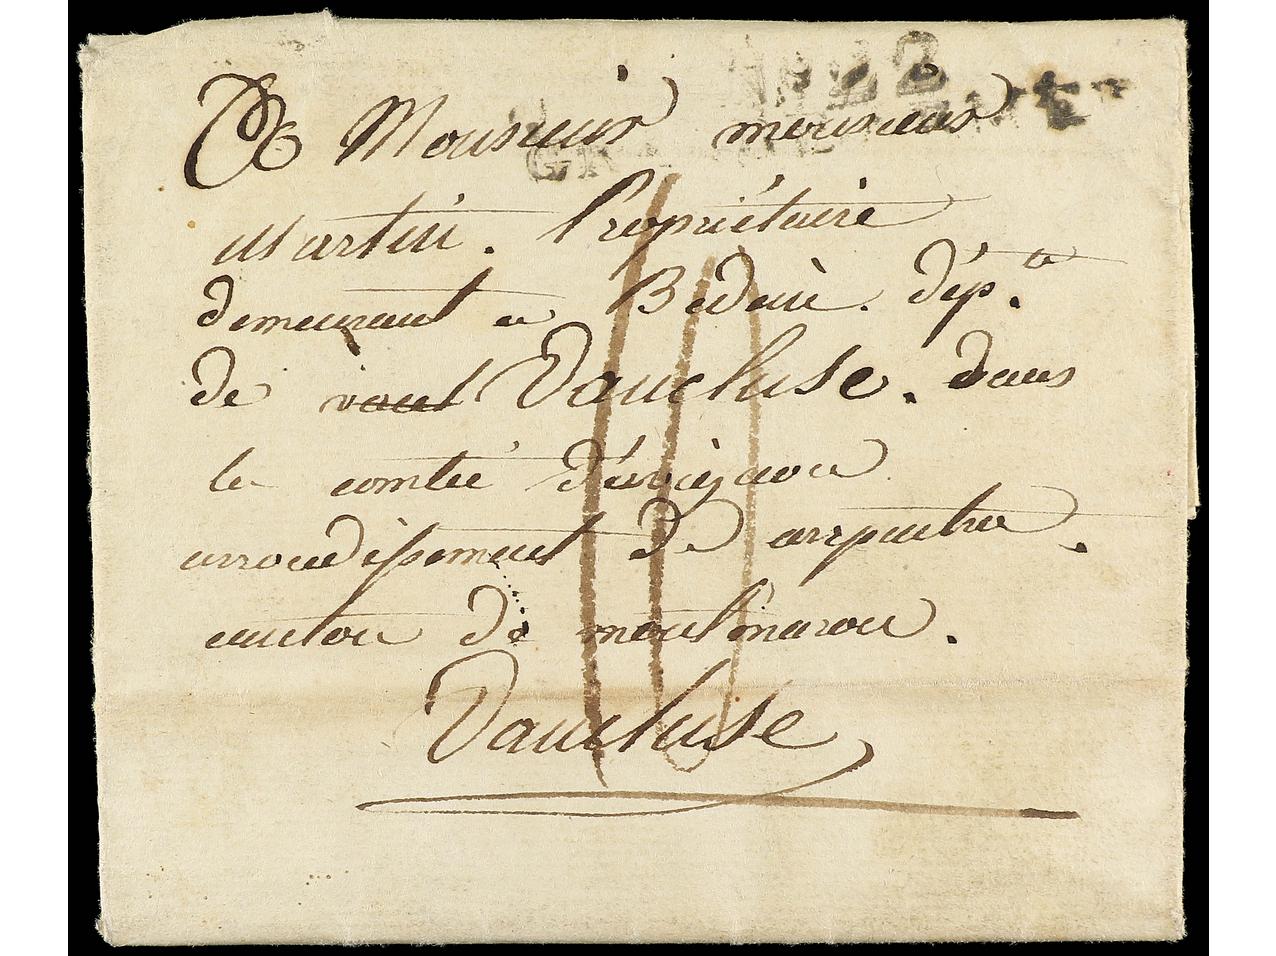 N° 22
GRANDE ARMÉE
A Monsieur monsieur
Martin. Propriétaire
demeurant a Beduin. dép.te
de vaucl Vaucluse. dans
le comté d'avignon
arrondissement de carpentra.
canton de montmaron.
Vaucluse
10